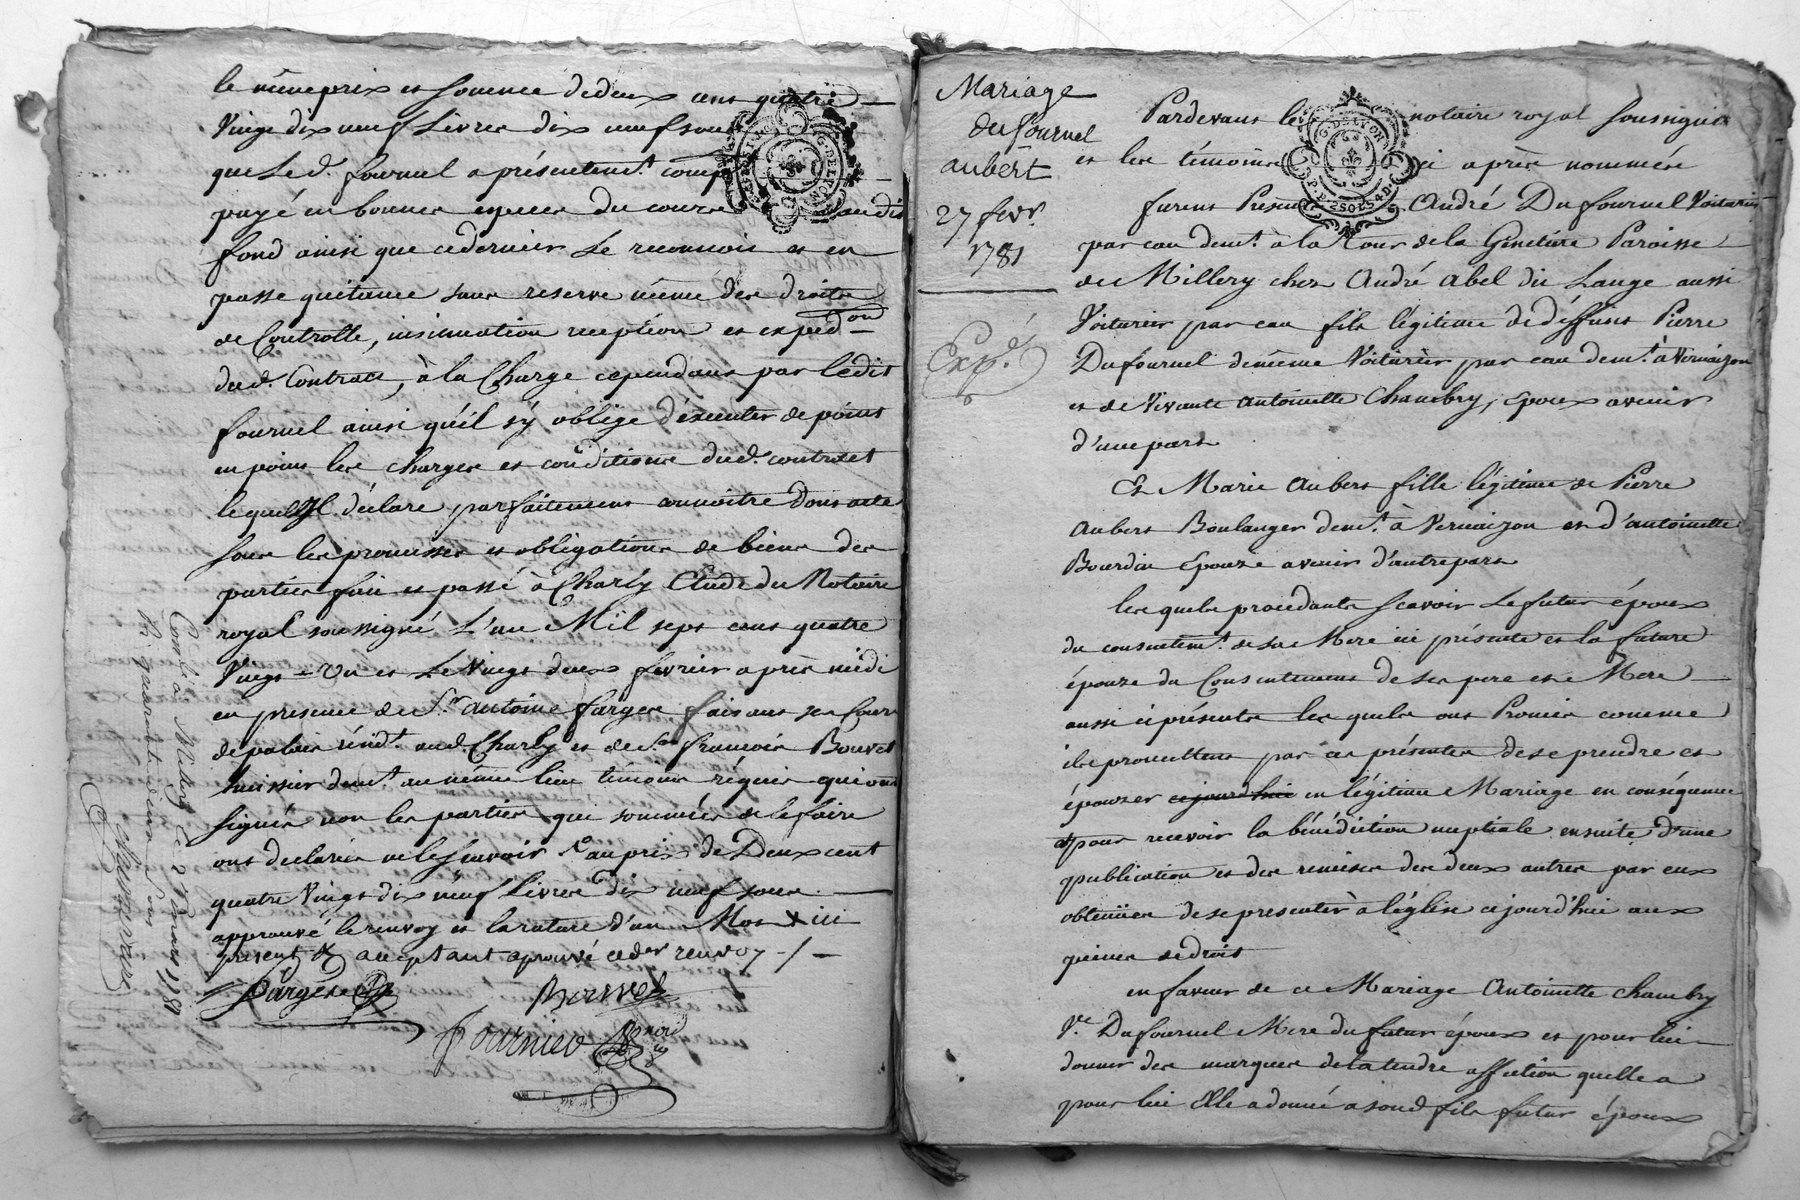 le même prix et somme de deux cens quatre
Vingt dix neuf Livres dix neuf sous
que Led. fournel a présentemt. compté
payé en bonnes especes du cours audit
fond ainsi que ce dernier Le reconnoit et en
passe quitance sans reserve même des droits
de Controlle, insinuation reception et expédon
dud. Contract, à la Charge cependant par ledit
fournel ainsi qu'il s'y oblige d'éxecuter de point
en point les charges et conditions dud. contract
lequel Il déclare parfaitement connoitre dont acte
sous les promesses et obligations de biens des
parties fait et passé à Charly Etude du Notaire
royal soussigné L'an Mil sept cens quatre
Vingt = Un et Le Vingt deux février après midi
en presence de Sr. Antoine farges faisant ses Cours
de palais résidt. aud. Charly et de Sr. françois Bouvet
huissier demt. au même lieu témoins réquis qui ont
signés non les parties qui sommées de le faire
ont declarées ne le sçavoir au prix de Deux cent
quatre Vingt dix neuf livres dix neuf sous.
approuvé le renvoy et la rature d'un Mot X ici
present & acceptant aprouvé ce der renvoy -/-
farges
Bouvet
fournier
Contlé à Millery Le 2 Mars 1781
Rt quarante deux sous
Mariage
dufournel
aubert
27 fevr.
1781
Expé.
G. DE LYON
Pardevant le notaire royal soussigné
et les témoins ci après nommés
furent Présents André Dufournel Voiturier
par eau demt. à la Tour de la Ginetiere Paroisse
de Millery chez André Abel dit Lange aussi
Voiturier par eau fils légitime de déffunt Pierre
Dufournel de même Voiturier par eau demt. à Vernaizon
et de Vivante Antoinette Chambry, Epoux avenir
d'une part
Et Marie Aubert fille légitime de Pierre
Aubert Boulanger demt. à Vernaizon et d'Antoinette
Bourdin Epouze avenir d'autre part
lesquels procedants sçavoir Le futur époux
du consentemt. de sa Mere ici présente et la future
épouze du Consentement de ses pere et Mere
aussi ci présents lesquels ont Promis comme
ils promettent par ces présentes de se prendre et
épouzer cejourd'hui en légitime Mariage en conséquence
pour recevoir la bénédiction nuptiale ensuite d'une
publication et des remises des deux autres par eux
obtenües de se presenter à l'église cejourd'hui aux
peines de droit
en faveur de ce Mariage Antoinette Chambry
Ve. Dufournel Mere du futur époux et pour lui
donner des marques de la tendre affection quelle a
pour lui Elle a donné a sond fils futur époux